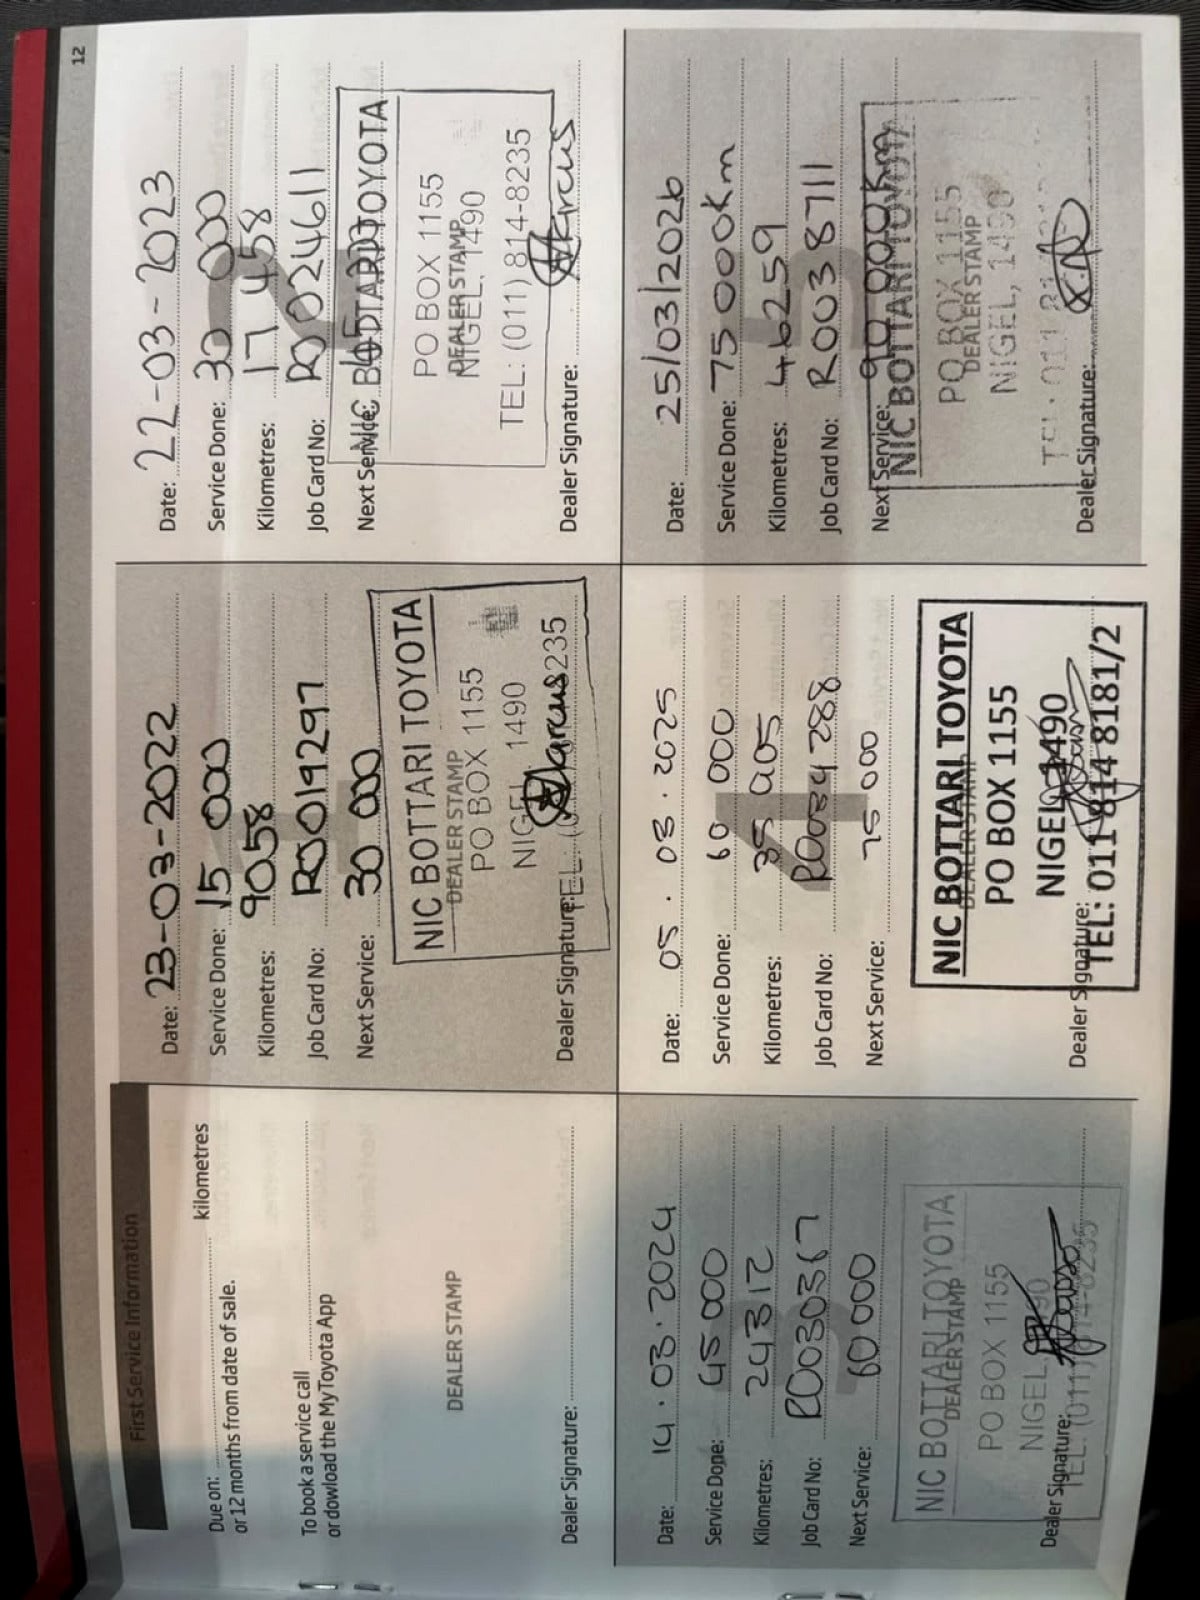 12
First Service Information
Due on: kilometres
or 12 months from date of sale.
To book a service call
or dowload the MyToyota App
DEALER STAMP
Dealer Signature:
1
Date: 23-03-2022
Service Done: 15 000
Kilometres: 9058
Job Card No: RO019297
Next Service: 30 000
NIC BOTTARI TOYOTA
DEALER STAMP
PO BOX 1155
NIGEL 1490
Marcus
Dealer Signature:
TEL: 235
2
Date: 22-03-2023
Service Done: 30 000
Kilometres: 17 458
Job Card No: RO024611
Next Service:
NIC BOTTARI TOYOTA
PO BOX 1155
DEALER STAMP
NIGEL, 1490
TEL: (011) 814-8235
Marcus
Dealer Signature:
3
Date: 14.03.2024
Service Done: 45 000
Kilometres: 24312
Job Card No: RO030367
Next Service: 60 000
NIC BOTTARI TOYOTA
DEALER STAMP
PO BOX 1155
NIGEL, 1490
Dealer Signature:
TEL: (011) 814-8235
4
Date: 05.03.2025
Service Done: 60 000
Kilometres: 35 905
Job Card No: RO034288
Next Service: 75 000
NIC BOTTARI TOYOTA
DEALER STAMP
PO BOX 1155
NIGEL 1490
Dealer Signature:
TEL: 011 814 8181/2
5
Date: 25/03/2026
Service Done: 75 000km
Kilometres: 46259
Job Card No: RO038711
Next Service: 90 000km
NIC BOTTARI TOYOTA
PO BOX 1155
DEALER STAMP
NIGEL, 1490
TEL: 011
Dealer Signature: